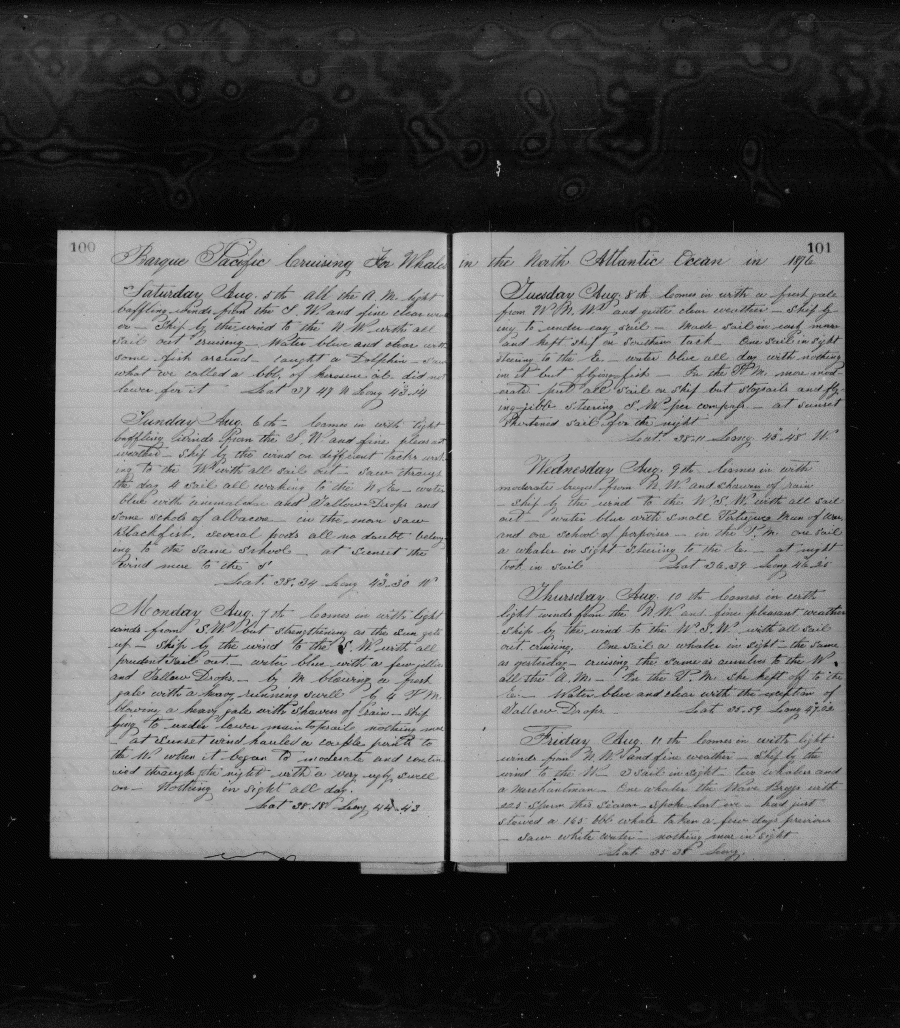 100
Barque Pacific Cruising For Whales
Saturday Aug. 5th All the A.M. light
baffling winds from the S.W and fine clear
Ship by the wind to the N.W. with all
sail out cruising. Water blue and clear with
some fish around - caught a Dolphin - saw
what we called a bbl of kerosine oil did not
lower for it Lat 37 47 N Long 43-14
Sunday Aug. 6th - Comes in with light
baffling winds from the S.W and fine pleasant
weather - Ship by the wind on different tacks work
ing to the W. with all sail out - saw through
the day 4 sail all working to the N E - water
blue with animalculae and Tallow Drops and
some schols of albacore - in the morn saw
Blackfish, several pods all no doubt belong
ing to the same school - at Sunset the
wind more to the S
Lat. 38-34 Long 43-30 W
Monday Aug. 7th Comes in with light
winds from S.W but strengthening as the sun gets
up - Ship by the wind to the S.W. with all
prudent sail out - water blue with a few
and Tallow Drops. - by M blowing a fresh
gale with a heavy running swell by 4 P.M.
blowing a heavy gale with showers of Rain - Ship
lying to under lower maintopsail nothing more
- at Sunset wind hauled a couple points to
the W. when it began to moderate and contin
ued through the night with a very ugly swell
on - Nothing in sight all day.
Lat 38-18 Long 44-43
101
in the North Atlantic Ocean in 1876
Tuesday Aug. 8th Comes in with a fresh gale
from W.N.W and quite clear weather - Ship ly
ing to under easy sail - Made sail in morn
and kept ship on southern tack - One sail in sight
steering to the E. - water blue all day with nothing
in it but flying fish - In the P.M. more mod
erate put all sail on ship but staysails and fly
ing jibb steering S.W per compass - at sunset
Shortened sail for the night
Lat. 38-11 Long 45-48 W.
Wednesday Aug. 9th Comes in with
moderate breeze from N.W and showers of rain
- Ship by the wind to the W.S.W. with all sail
out - water blue with small Portuguese Man of War,
and one school of porpoises - in the P.M. one sail
a whaler in sight steering to the E. - at night
took in sail Lat 36-39 Long 46-20
Thursday Aug. 10th Comes in with
light winds from the N.W and fine pleasant weather
Ship by the wind to the W.S.W. with all sail
out cruising. One sail a whaler in sight - the same
as yesterday - cruising the same as ourselves to the W.
all the A.M. - In the P.M. she kept off to the
E. - Water blue and clear with the exception of
Tallow Drops Lat. 35-59 Long 47-22
Friday Aug. 11th Comes in with light
winds from N.W. and fine weather - Ship by the
wind to the W - 3 sail in sight - two whalers and
a Merchantman - One whaler the Wave Brigg with
225 Sperm this season - Spoke last eve - had just
stowed a 165 bbl whale taken a few days previous
- Saw white water - nothing more in sight
Lat. 35 38 Long.